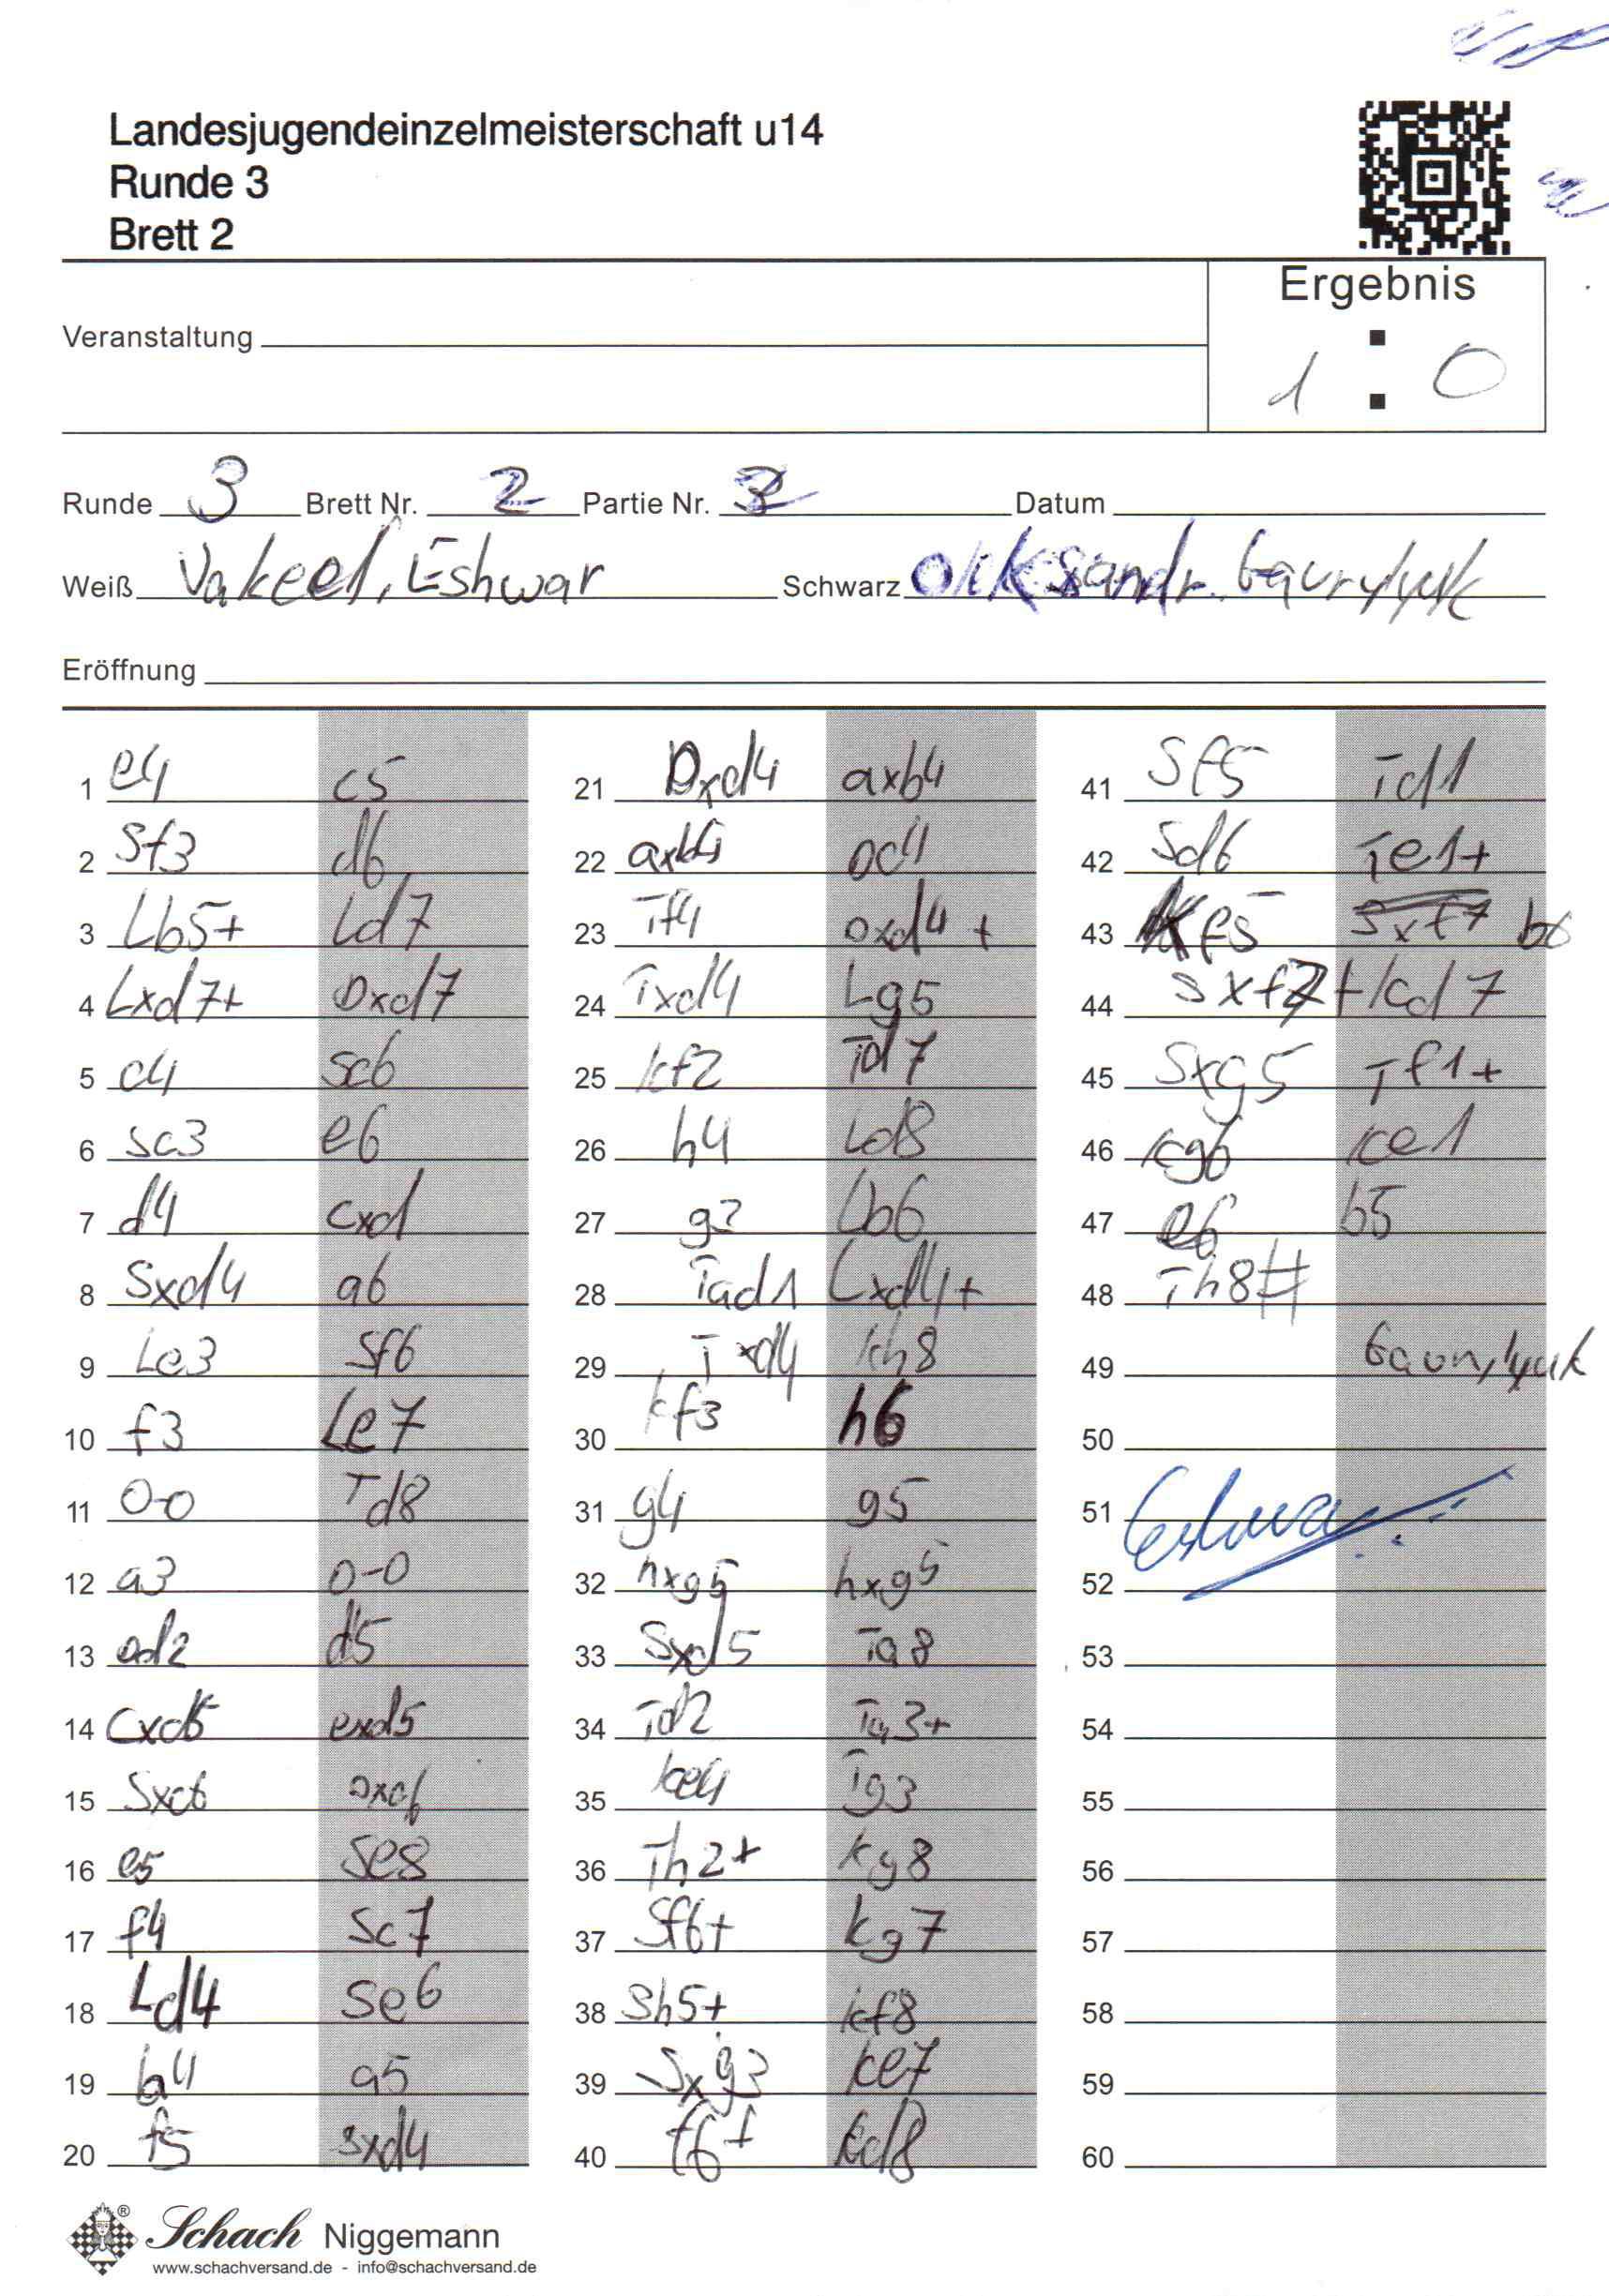 Landesjugendeinzelmeisterschaft u14
Runde 3
Brett 2
Ergebnis
1 : 0
Veranstaltung
Runde 3 Brett Nr. 2 Partie Nr.
Datum
Weiß Vakeel, Eshwar Schwarz
Eröffnung
1 e4 c5
2 Sf3 d6
3 Lb5+ Ld7
4 Lxd7+ Dxd7
5 c4 Sc6
6 Sc3 e6
7 d4 cxd
8 Sxd4 a6
9 Le3 Sf6
10 f3 Le7
11 0-0 Td8
12 a3 0-0
13 Dd2 d5
14 cxd5 exd5
15 Sxc6 Dxc6
16 e5 Se8
17 f4 Sc7
18 Ld4 Se6
19 b4 a5
20 f5 Sxd4
21 Dxd4 axb4
22 axb4 Dc4
23 Tf4 Dxd4+
24 Txd4 Lg5
25 Kf2 Td7
26 h4 Ld8
27 g3 Lb6
28 Tad1 Lxd4+
29 Txd4 Kh8
30 Kf3 h6
31 g4 g5
32 hxg5 hxg5
33 Sxd5 Ta8
34 Td2 Ta3+
35 Ke4 Tg3
36 Th2+ Kg8
37 Sf6+ Kg7
38 Sh5+ Kf8
39 Sxg3 Ke7
40 f6+ Kd8
41 Sf5 Td1
42 Sd6 Te1+
43 Kf5 b6
44 Sxf7+ Kd7
45 Sxg5 Tf1+
46 Kg6 Ke1
47 e6 b5
48 Th8#
49
50
51
52
53
54
55
56
57
58
59
60
Schach Niggemann
www.schachversand.de - info@schachversand.de